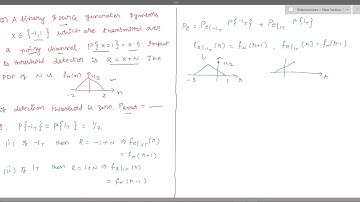 Q) A binary source generates symbols
X ∈ {-1,1} which are transmitted over
a noisy channel. P{X=1} = 0.5. Input
to threshold detector is R = X+N. The
PDF of N is fN(n)
1/2
-2 2 n
If detection threshold is zero, Perror = ___
P{-1T} = P{1T} = 1/2
(i) If -1T then R = -1+N ⇒ fR|-1T(r)
= fN(r+1)
(ii) If 1T then R = 1+N ⇒ fR|1T(r)
= fN(r-1)
Pe = Pe|-1T P{-1T} + Pe|1T P{1T}
fR|-1T(r) = fN(r+1), fR|1T(r) = fN(r-1)
1/2
-3 1 r
r